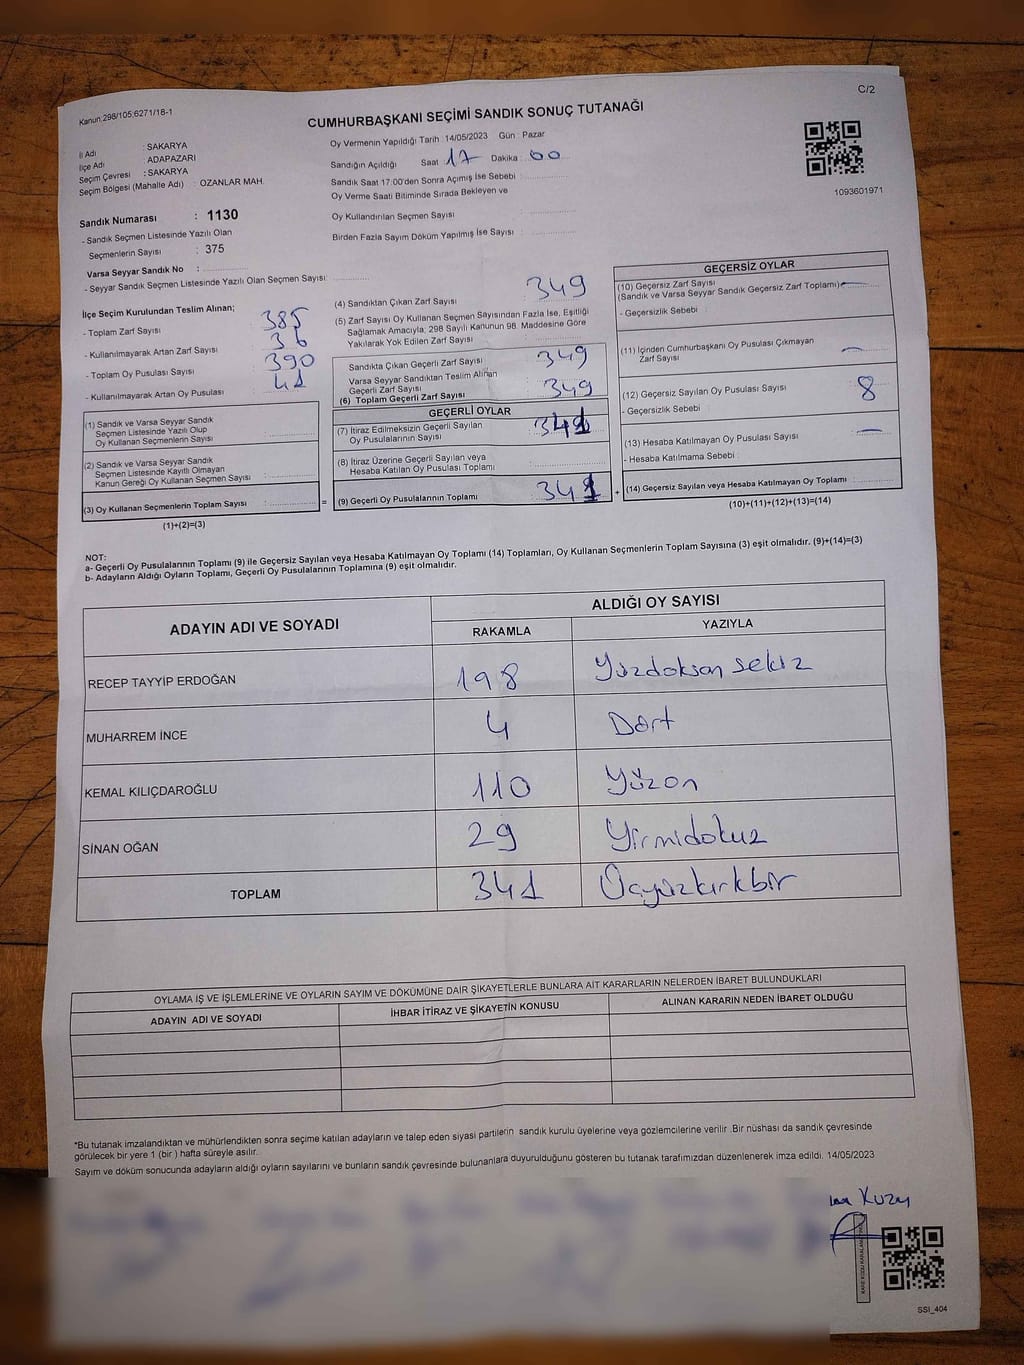 Kanun:298/105;6271/18-1
C/2
CUMHURBAŞKANI SEÇİMİ SANDIK SONUÇ TUTANAĞI
İl Adı : SAKARYA
İlçe Adı : ADAPAZARI
Seçim Çevresi : SAKARYA
Seçim Bölgesi (Mahalle Adı) : OZANLAR MAH.
Oy Vermenin Yapıldığı Tarih : 14/05/2023 Gün : Pazar
Sandığın Açıldığı Saat 17 Dakika : 00
Sandık Saat 17:00'den Sonra Açmış İse Sebebi :
Oy Verme Saati Bitiminde Sırada Bekleyen ve
Oy Kullandırılan Seçmen Sayısı :
Birden Fazla Sayım Döküm Yapılmış İse Sayısı :
1093601971
Sandık Numarası : 1130
- Sandık Seçmen Listesinde Yazılı Olan
Seçmenlerin Sayısı : 375
Varsa Seyyar Sandık No :
- Seyyar Sandık Seçmen Listesinde Yazılı Olan Seçmen Sayısı:
İlçe Seçim Kurulundan Teslim Alınan;
- Toplam Zarf Sayısı : 385
- Kullanılmayarak Artan Zarf Sayısı : 36
- Toplam Oy Pusulası Sayısı : 390
- Kullanılmayarak Artan Oy Pusulası : 41
(1) Sandık ve Varsa Seyyar Sandık
Seçmen Listesinde Yazılı Olup
Oy Kullanan Seçmenlerin Sayısı :
(2) Sandık ve Varsa Seyyar Sandık
Seçmen Listesinde Kayıtlı Olmayan
Kanun Gereği Oy Kullanan Seçmen Sayısı :
(3) Oy Kullanan Seçmenlerin Toplam Sayısı :
(1)+(2)=(3)
=
(4) Sandıktan Çıkan Zarf Sayısı : 349
(5) Zarf Sayısı Oy Kullanan Seçmen Sayısından Fazla İse, Eşitliği
Sağlamak Amacıyla; 298 Sayılı Kanunun 98. Maddesine Göre
Yakılarak Yok Edilen Zarf Sayısı :
Sandıkta Çıkan Geçerli Zarf Sayısı : 349
Varsa Seyyar Sandıktan Teslim Alınan
Geçerli Zarf Sayısı :
(6) Toplam Geçerli Zarf Sayısı : 349
GEÇERLİ OYLAR
(7) İtiraz Edilmeksizin Geçerli Sayılan
Oy Pusulalarının Sayısı : 341
(8) İtiraz Üzerine Geçerli Sayılan veya
Hesaba Katılan Oy Pusulası Toplamı :
(9) Geçerli Oy Pusulalarının Toplamı : 341
+
GEÇERSİZ OYLAR
(10) Geçersiz Zarf Sayısı
(Sandık ve Varsa Seyyar Sandık Geçersiz Zarf Toplamı) : —
- Geçersizlik Sebebi :
(11) İçinden Cumhurbaşkanı Oy Pusulası Çıkmayan
Zarf Sayısı : —
(12) Geçersiz Sayılan Oy Pusulası Sayısı : 8
- Geçersizlik Sebebi :
(13) Hesaba Katılmayan Oy Pusulası Sayısı : —
- Hesaba Katılmama Sebebi :
(14) Geçersiz Sayılan veya Hesaba Katılmayan Oy Toplamı :
(10)+(11)+(12)+(13)=(14)
NOT:
a- Geçerli Oy Pusulalarının Toplamı (9) ile Geçersiz Sayılan veya Hesaba Katılmayan Oy Toplamı (14) Toplamları, Oy Kullanan Seçmenlerin Toplam Sayısına (3) eşit olmalıdır. (9)+(14)=(3)
b- Adayların Aldığı Oyların Toplamı, Geçerli Oy Pusulalarının Toplamına (9) eşit olmalıdır.
ADAYIN ADI VE SOYADI
ALDIĞI OY SAYISI
RAKAMLA YAZIYLA
RECEP TAYYİP ERDOĞAN 198 Yüzdoksan sekiz
MUHARREM İNCE 4 Dört
KEMAL KILIÇDAROĞLU 110 Yüzon
SİNAN OĞAN 29 Yirmidokuz
TOPLAM 341 Üçyüzkırkbir
OYLAMA İŞ VE İŞLEMLERİNE VE OYLARIN SAYIM VE DÖKÜMÜNE DAİR ŞİKAYETLERLE BUNLARA AİT KARARLARIN NELERDEN İBARET BULUNDUKLARI
ADAYIN ADI VE SOYADI İHBAR İTİRAZ VE ŞİKAYETİN KONUSU ALINAN KARARIN NEDEN İBARET OLDUĞU
*Bu tutanak imzalandıktan ve mühürlendikten sonra seçime katılan adayların ve talep eden siyasi partilerin sandık kurulu üyelerine veya gözlemcilerine verilir .Bir nüshası da sandık çevresinde
görülecek bir yere 1 (bir ) hafta süreyle asılır.
Sayım ve döküm sonucunda adayların aldığı oyların sayılarını ve bunların sandık çevresinde bulunanlara duyurulduğunu gösteren bu tutanak tarafımızdan düzenlenerek imza edildi. 14/05/2023
SSI_404